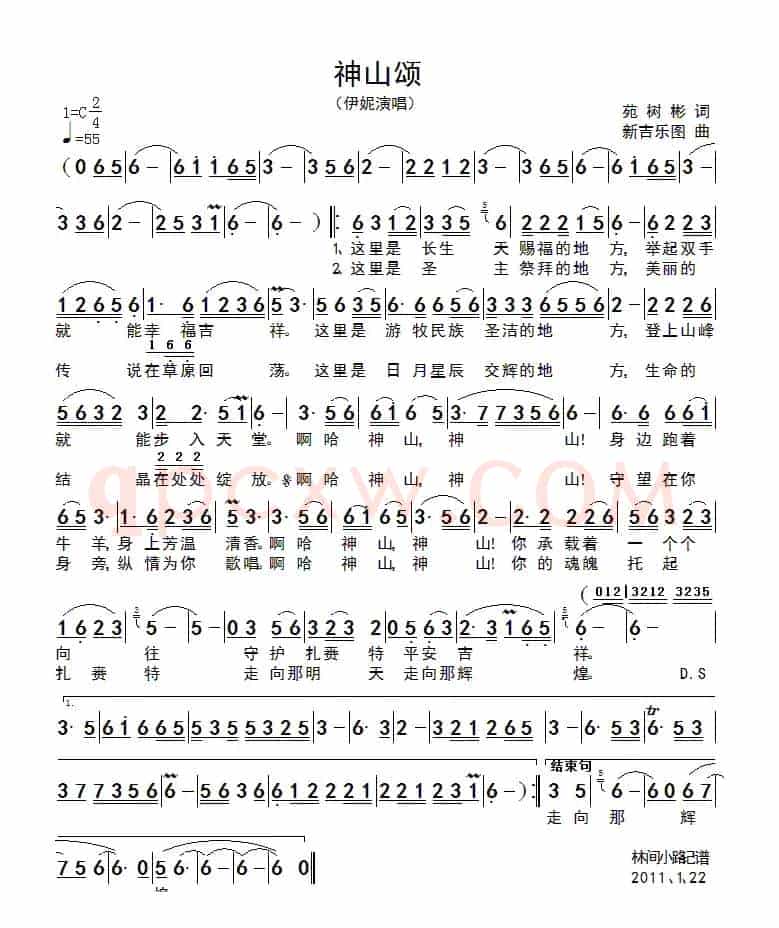 神山颂
（伊妮演唱）
1=C 2/4
♩=55
苑 树 彬 词
新吉乐图 曲
(0 6 5 | 6 - | 6 1 1 6 5 | 3 - | 3 5 6 | 2 - | 2 2 1 2 | 3 - | 3 6 5 | 6 - | 6 1 6 5 | 3 -
3 3 6 | 2 - | 2 5 3 1 | 6 - | 6 - ) |: 6 3 1 2 | 3 3 5 6 | 2 2 2 1 5 | 6 - | 6 2 2 3
1、这里是 长生 天 赐福的地 方, 举起双手
2、这里是 圣 主 祭拜的地 方, 美丽的
1 2 6 5 6 | 1· 6 | 1 2 3 6 | 5 3· | 5 6 5 3 | 6· 6 | 6 6 5 6 | 3 6 5 6 | 2 - | 2 2 2 6
就 能幸 福吉 祥。 这里是 游 牧民族 圣洁的地 方, 登上山峰
1 6 6
传 说在草原回 荡。 这里是 日 月星辰 交辉的地 方, 生命的
5 6 3 2 3 | 2 2· 5 1 | 6 - | 3· 5 6 | 6 1 6 5 | 3· 7 7 3 5 6 | 6 - | 3· 6 | 6 6 1
就 能步 入 天 堂。 啊 哈 神 山, 神 山! 身 边 跑着
2 2 2
结 晶在处处 绽 放。 𝄋啊 哈 神 山, 神 山! 守 望 在你
6 5 3· | 1· 6 | 2 2 3 6 | 5 3· | 3· 5 6 | 6 1 6 5 | 3· 6 5 | 2 - | 2· 2 | 1 2 6 | 5 6 3 2
牛 羊, 身 上 芳温 清香。 啊 哈 神 山, 神 山! 你 承 载着 一 个个
身 旁, 纵 情为你 歌唱。 啊 哈 神 山, 神 山! 你 的 魂魄 托 起
(0 1 2 | 3 2 1 2 3 2 3 5
1 6 2 3 | 5 - | 5 - | 0 3 5 6 | 3 2 3 2 | 0 5 6 3 | 2· 3 1 6 5 | 6 - | 6 -
向 往 守护 扎赉 特 平安 吉 祥。
扎 赉 特 走向 那明 天 走向 那辉 煌。 D.S
1.
3· 5 | 6 1 6 6 5 | 5 3 5 5 3 2 5 | 1· 6 | 3 2 - | 3 2 1 2 6 5 | 3 - | 6· 5 3 | 6· 5 3
3 7 7 3 5 6 | 6 - | 5 6 3 6 | 6 1 2 2 2 1 | 2 2 2 3 1 | 6 - ) :| 3 5 | 6 - | 6 0 6 7
结束句
走向 那 辉
7 5 6 | 6· 0 | 5 6 - | 6 - | 6 0 ‖
林间小路记谱
2011、1、22
qpcxw.COM